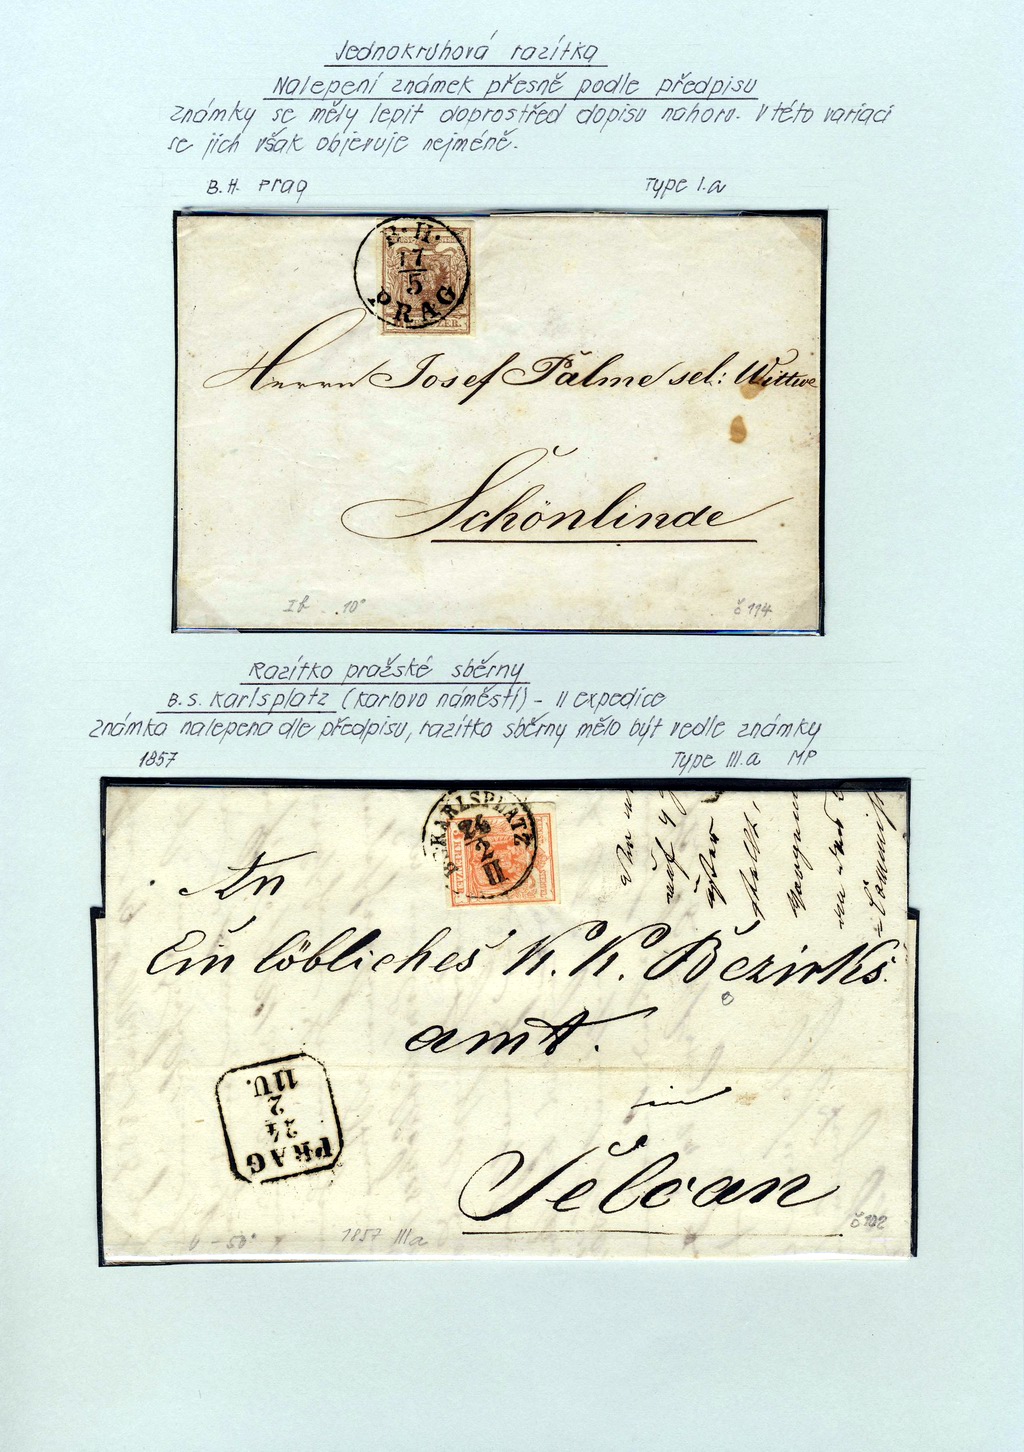 Jednokruhová razítka
Nalepení známek přesně podle předpisu
známky se měly lepit doprostřed dopisu nahoru. V této variaci
se jich však objevuje nejméně.
B.H. Prag
Type I.a
B.H.
17
5
PRAG
Herrn Josef Palme sel: Wittwe
Schönlinde
Ib 10°
č 114
Razítko pražské sběrny
B.S. Karlsplatz (Karlovo náměstí) - II expedice
známka nalepena dle předpisu, razítko sběrny mělo být vedle známky
1857
Type III.a MP
B.S. KARLSPLATZ
24
2
II
An
Ein löbliches K. K. Bezirks
amt.
in
Selcan
PRAG
24
2
11U.
- 50°
1857 IIIa
č 102